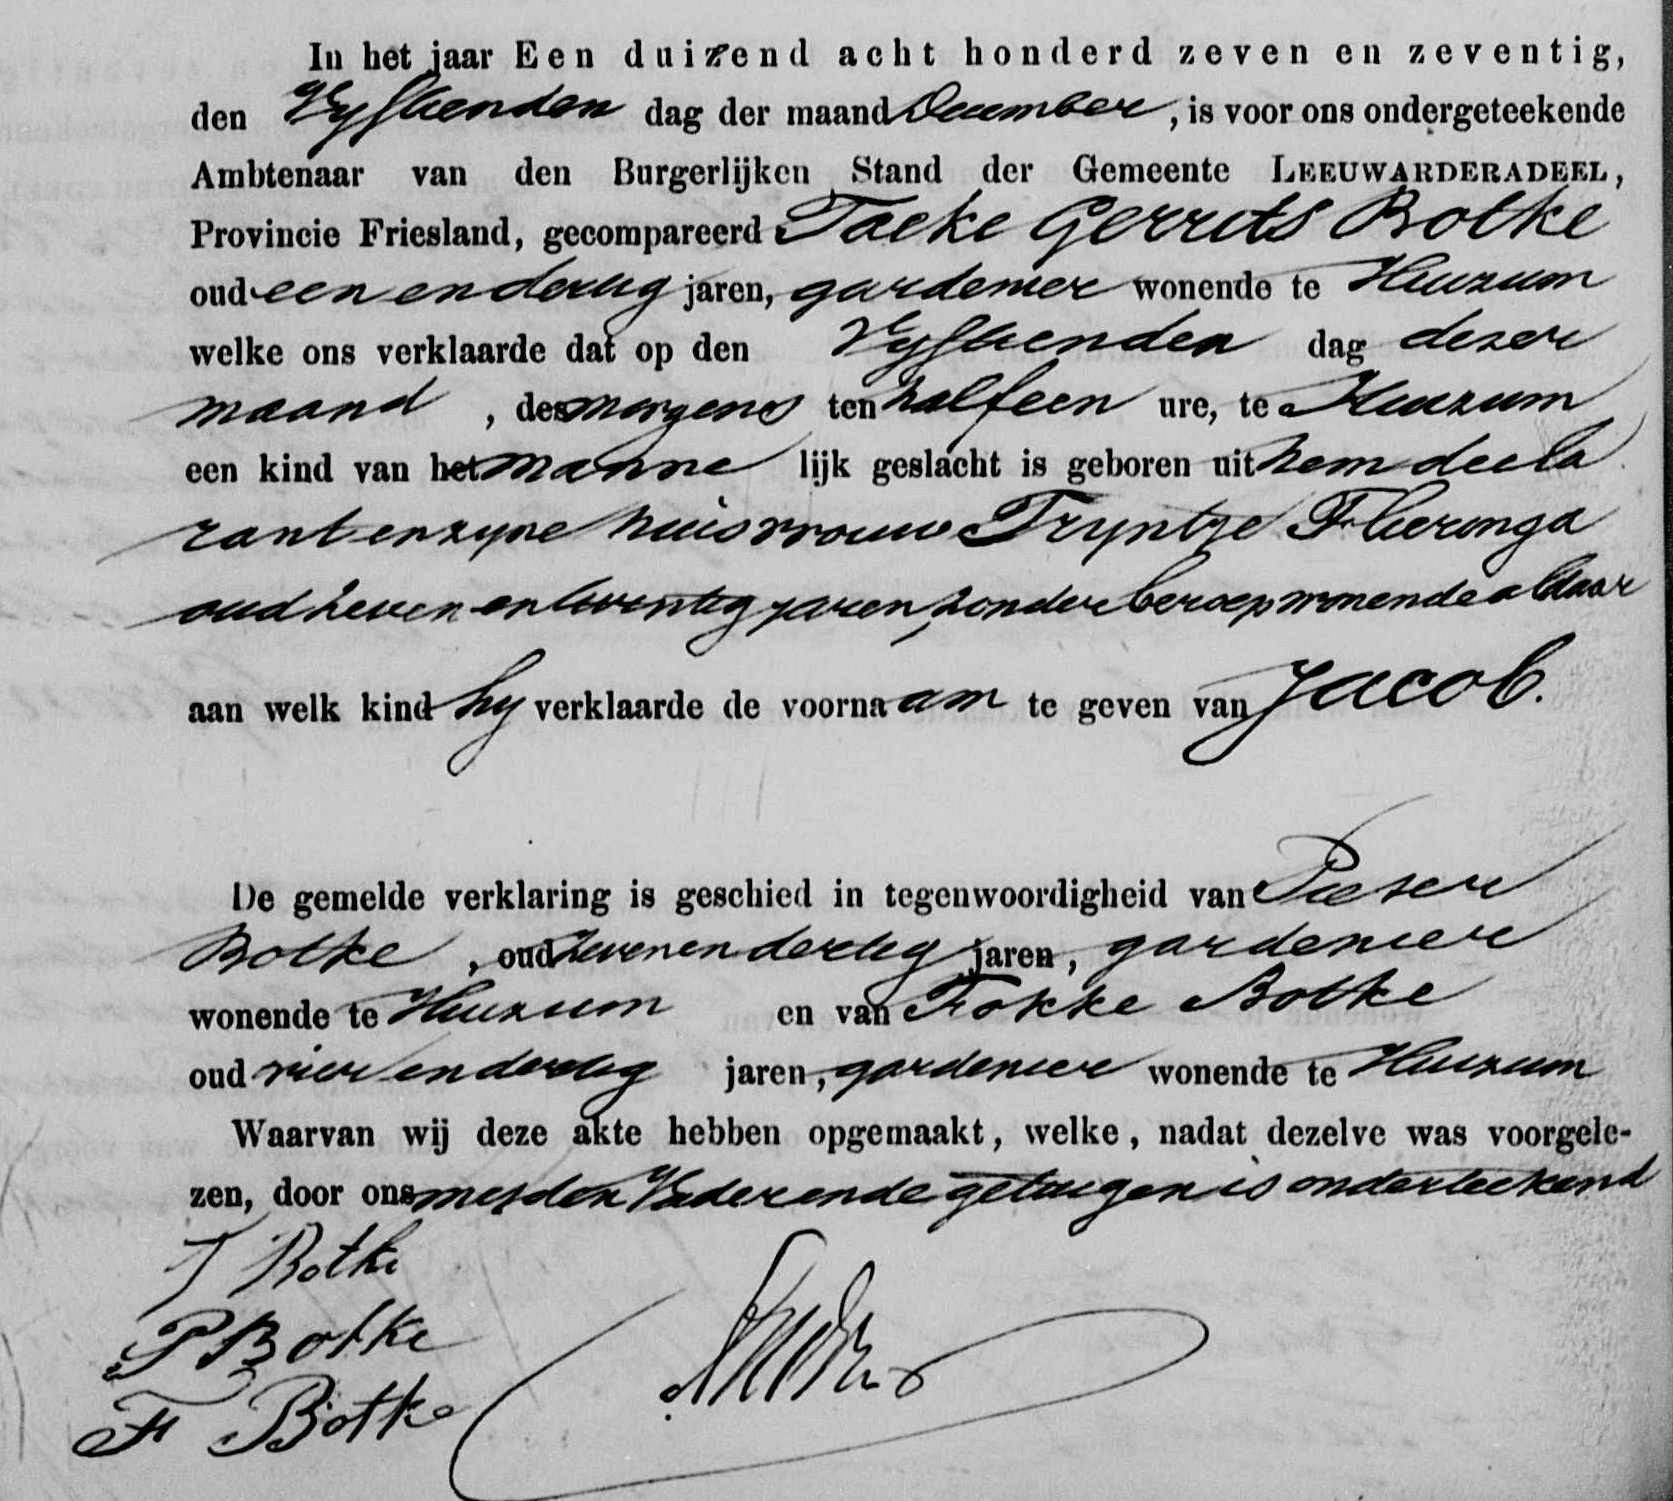 In het jaar Een duizend acht honderd zeven en zeventig,
den Vyftienden dag der maand December, is voor ons ondergeteekende
Ambtenaar van den Burgerlijken Stand der Gemeente LEEUWARDERADEEL,
Provincie Friesland, gecompareerd Taeke Gerrits Botke
oud een en dertig jaren, gardenier wonende te Huizum
welke ons verklaarde dat op den Vyftienden dag dezer
maand, des morgens ten half een ure, te Huizum
een kind van het manne lijk geslacht is geboren uit hem decla
rant en zyne huisvrouw Tryntje Fheringa
oud zeven en twintig jaren, zonder beroep wonende aldaar
aan welk kind hy verklaarde de voorna am te geven van Jacob.
De gemelde verklaring is geschied in tegenwoordigheid van Pieter
Botke, oud zeven en dertig jaren, gardenier
wonende te Huizum en van Fokke Botke
oud vier en dertig jaren, gardenier wonende te Huizum
Waarvan wij deze akte hebben opgemaakt, welke, nadat dezelve was voorgele-
zen, door ons met den Vader en de getuigen is onderteekend
T Botke
P Botke
F Botke